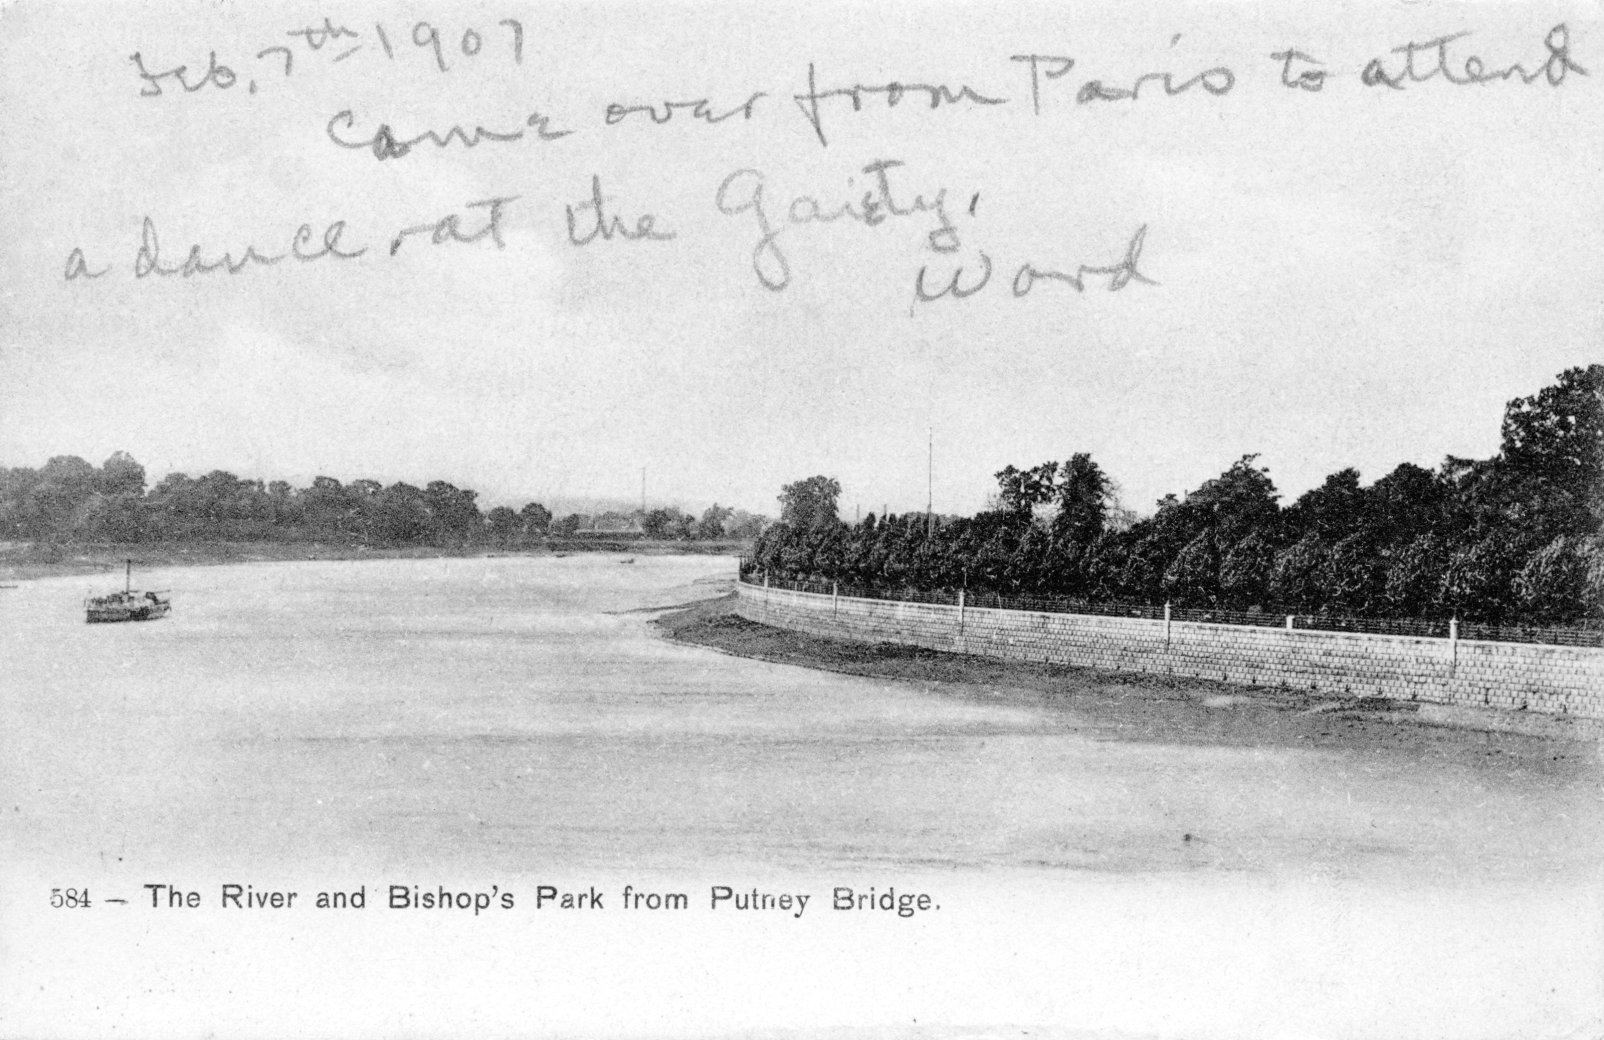 Feb. 7th 1907
Came over from Paris to attend
a dance, at the Gaiety,
Ward
584 – The River and Bishop's Park from Putney Bridge.